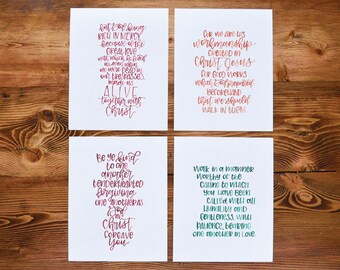 but God being
RICH IN MERCY
because of the
GREAT LOVE
with which he loved
us even when
we were dead in
our trespasses
made us
ALIVE
together with
Christ
For we are his
workmanship
created in
Christ Jesus
for good works
which God prepared
beforehand
that we should
walk in them
Be ye kind
to one
another
tenderhearted
forgiving
one another as
Christ
forgave
you
walk in a manner
worthy of the
calling to which
you have been
called with all
humility and
gentleness, with
patience, bearing
one another in love.